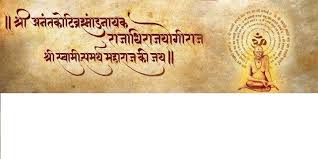 ॥ श्री अनंतकोटिब्रह्मांडनायक
राजाधिराजयोगीराज
श्री स्वामी समर्थ महाराज की जय ॥